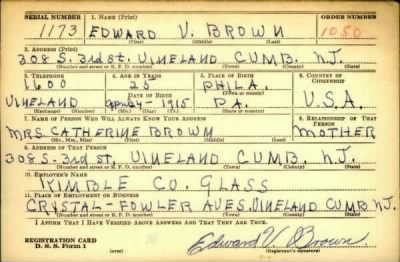 SERIAL NUMBER 1. NAME (Print) ORDER NUMBER
1173 EDWARD V. BROWN 1050
(First) (Middle) (Last)
2. ADDRESS (Print)
308 S. 3rd St. VINELAND CUMB. N.J.
(Number and street or R. F. D. number) (Town) (County) (State)
3. TELEPHONE 4. AGE IN YEARS 5. PLACE OF BIRTH 6. COUNTRY OF CITIZENSHIP
1600 25 PHILA. 
DATE OF BIRTH (Town or county)
VINELAND 1915 PA. U.S.A.
7. NAME OF PERSON WHO WILL ALWAYS KNOW YOUR ADDRESS 8. RELATIONSHIP OF THAT PERSON
MRS. CATHERINE BROWN MOTHER
9. ADDRESS OF THAT PERSON
308 S. 3rd St. VINELAND CUMB. N.J.
(Number and street or R. F. D. number) (Town) (County) (State)
10. EMPLOYER'S NAME
KIMBLE CO. GLASS
11. PLACE OF EMPLOYMENT OR BUSINESS
CRYSTAL - FOWLER AVES. VINELAND CUMB. N.J.
(Number and street or R. F. D. number) (Town) (County) (State)
I AFFIRM THAT I HAVE VERIFIED ABOVE ANSWERS AND THAT THEY ARE TRUE.
REGISTRATION CARD
D. S. S. Form 1
Edward V. Brown
(Registrant's signature)